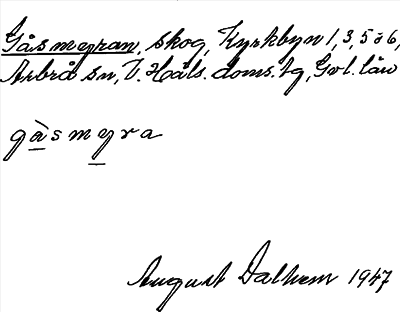 Gåsmyran, skog, Kyrkbyn 1, 3, 5 o 6,
Arbrå sn, V. Häls. doms. tg, Gvl. län
gàsmyra
August Dalhem 1947